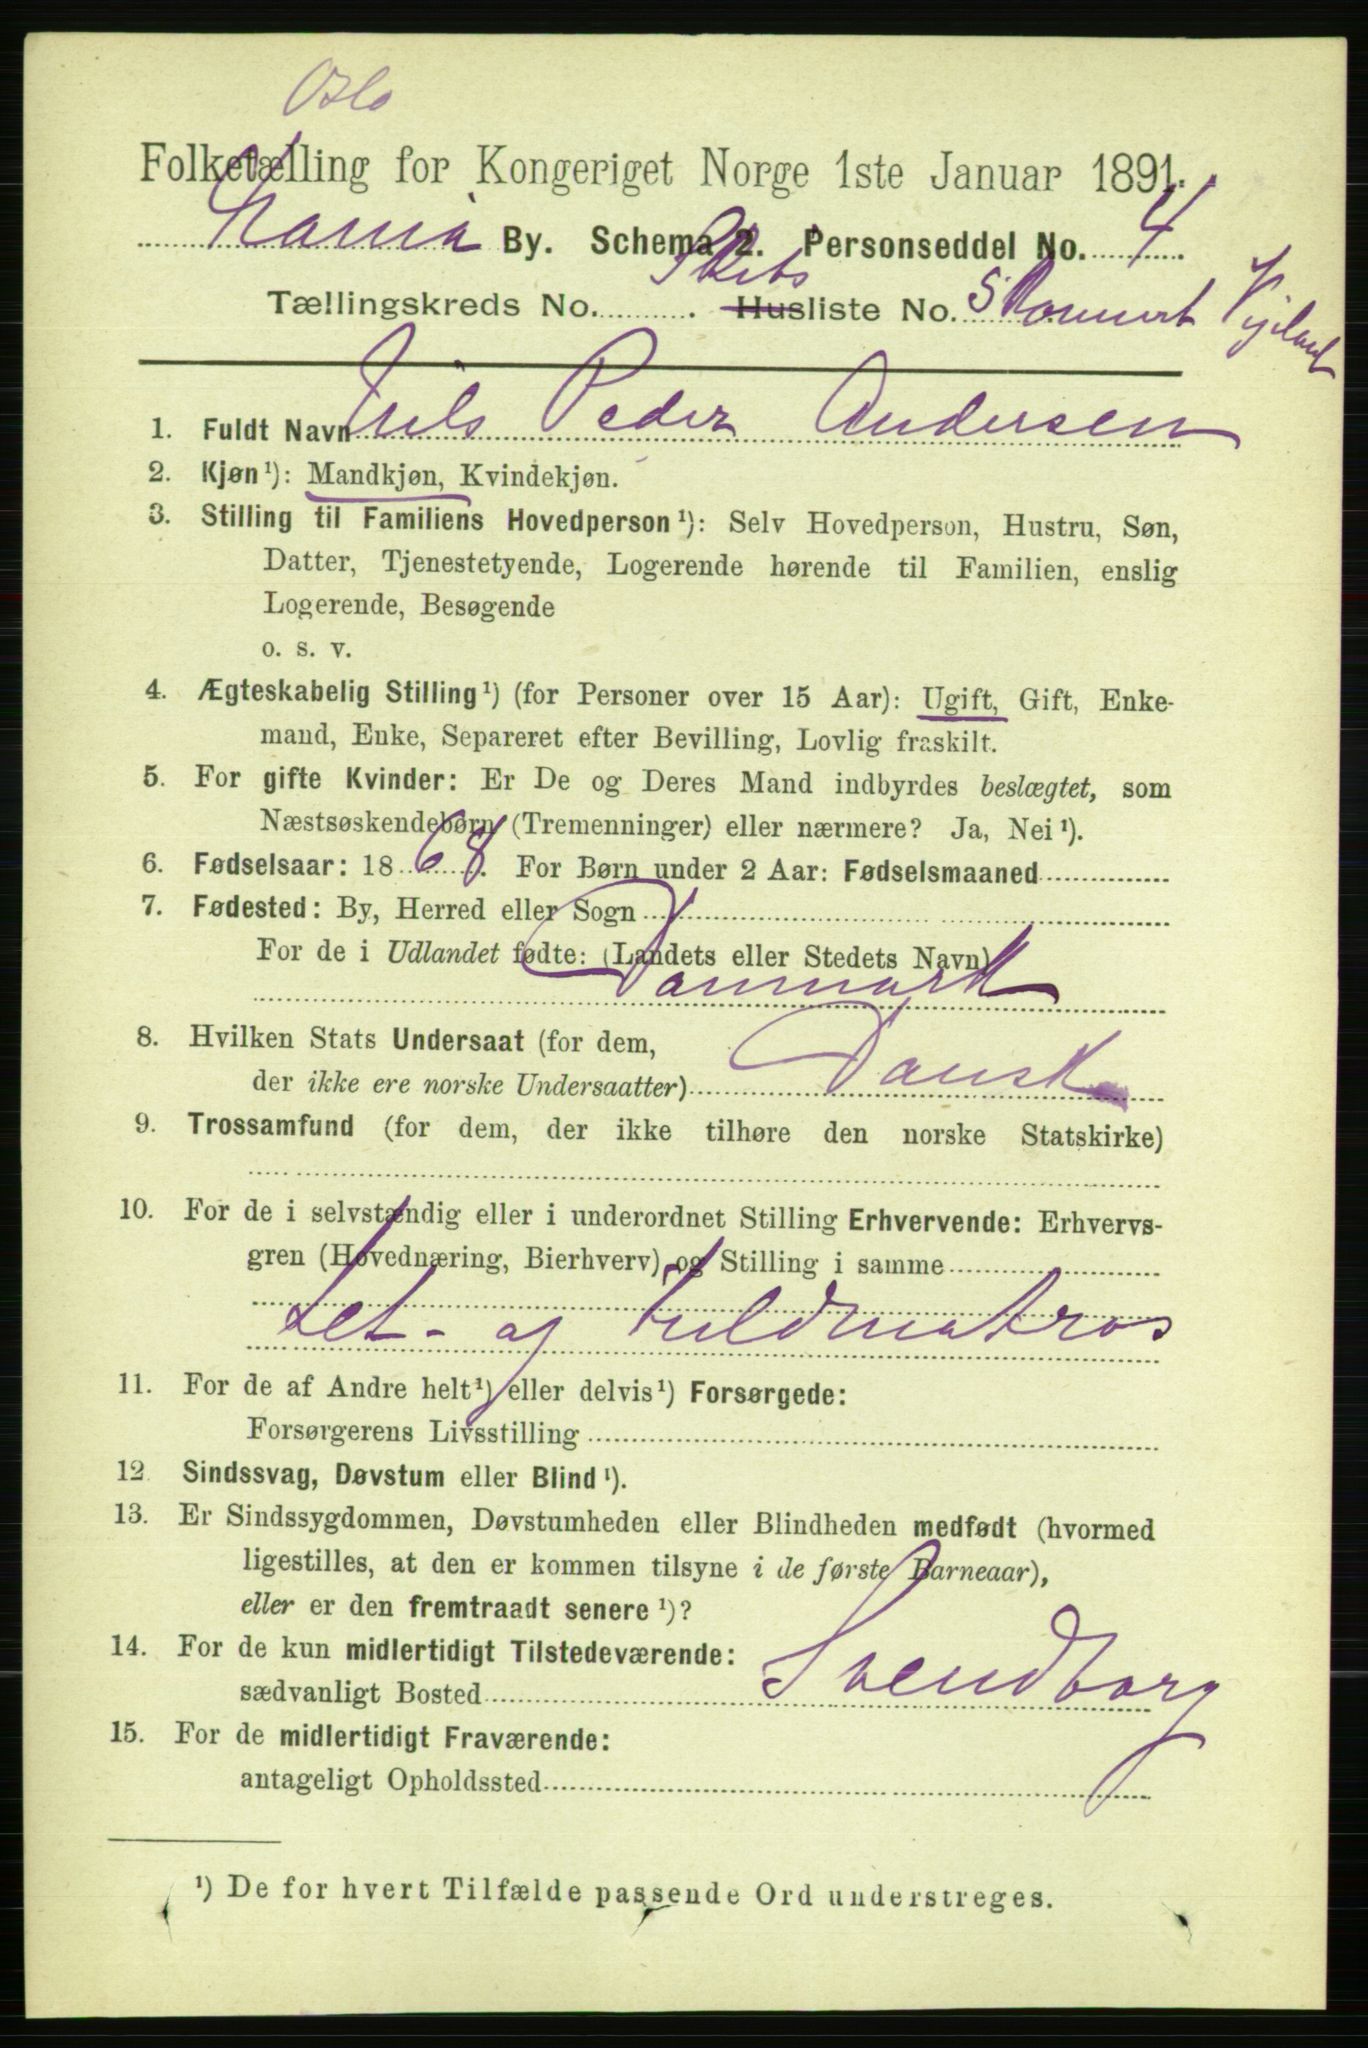 Oslo
Folketælling for Kongeriget Norge 1ste Januar 1891.
By. Schema 2. Personseddel No. 4
Skibs
Tællingskreds No. . Husliste No. Skonnert
1. Fuldt Navn Nils Peder Andersen
2. Kjøn ¹): Mandkjøn, Kvindekjøn.
3. Stilling til Familiens Hovedperson ¹): Selv Hovedperson, Hustru, Søn,
Datter, Tjenestetyende, Logerende hørende til Familien, enslig
Logerende, Besøgende
o. s. v.
4. Ægteskabelig Stilling ¹) (for Personer over 15 Aar): Ugift, Gift, Enke-
mand, Enke, Separeret efter Bevilling, Lovlig fraskilt.
5. For gifte Kvinder: Er De og Deres Mand indbyrdes beslægtet, som
Næstsøskendebørn (Tremenninger) eller nærmere? Ja, Nei ¹).
6. Fødselsaar: 1868. For Børn under 2 Aar: Fødselsmaaned
7. Fødested: By, Herred eller Sogn
For de i Udlandet fødte: (Landets eller Stedets Navn)
Danmark
8. Hvilken Stats Undersaat (for dem,
der ikke ere norske Undersaatter) Dansk
9. Trossamfund (for dem, der ikke tilhøre den norske Statskirke)
10. For de i selvstændig eller i underordnet Stilling Erhvervende: Erhvervs-
gren (Hovednæring, Bierhverv) og Stilling i samme
Let- og Fuldmatros
11. For de af Andre helt ¹) eller delvis ¹) Forsørgede:
Forsørgerens Livsstilling
12. Sindssvag, Døvstum eller Blind ¹).
13. Er Sindssygdommen, Døvstumheden eller Blindheden medfødt (hvormed
ligestilles, at den er kommen tilsyne i de første Barneaar),
eller er den fremtraadt senere ¹)?
14. For de kun midlertidigt Tilstedeværende:
sædvanligt Bosted Svendborg
15. For de midlertidigt Fraværende:
antageligt Opholdssted
¹) De for hvert Tilfælde passende Ord understreges.